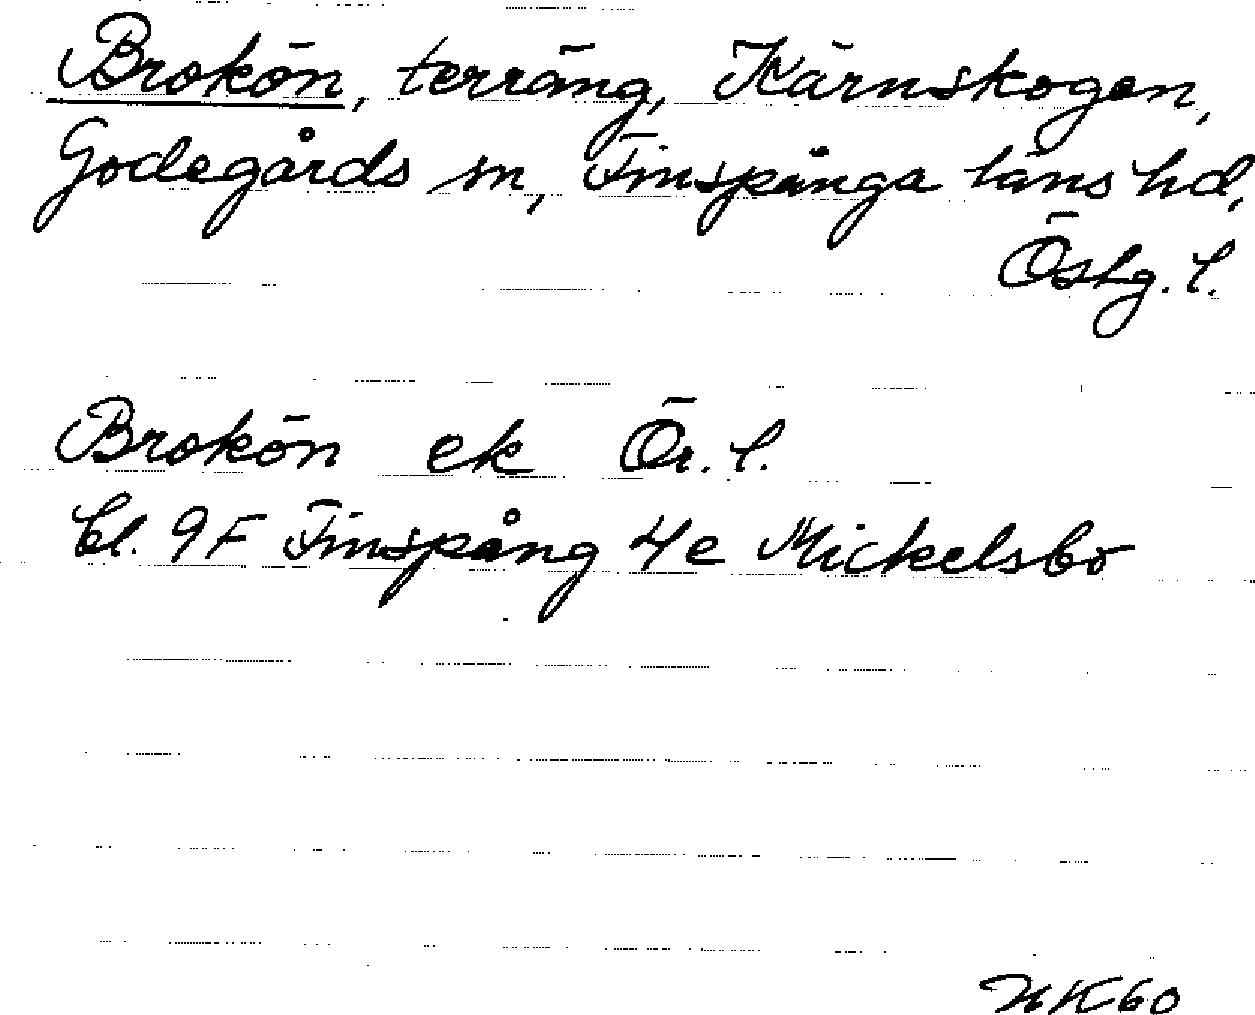 Brokön, terräng, Kärnskogen,
Godegårds sn, Finspånga läns hd,
Östg. l.
Brokön ek Ör. l.
bl. 9F Finspång 4e Mickelsbo
NK60